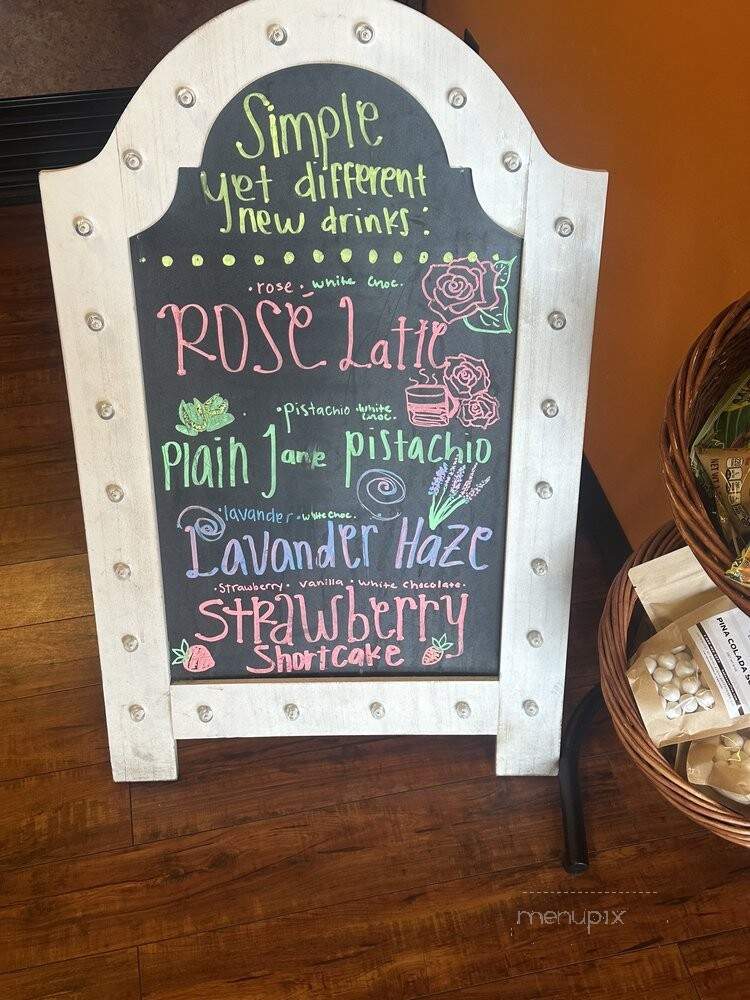 Simple
yet different
new drinks:
• rose • white choc.
ROSÉ Latte
• pistachio • white choc.
Plain Jane pistachio
• lavander • white choc.
Lavander Haze
• Strawberry • Vanilla • White Chocolate •
Strawberry
Shortcake
PINA COLADA
menupix